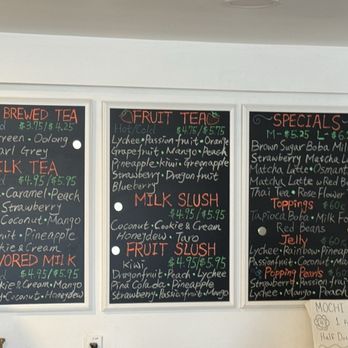 BREWED TEA
$3.75/$4.25
Green · Oolong
Earl Grey
MILK TEA
$4.95/$5.95
Caramel · Peach
Strawberry
Coconut · Mango
Fruit · Pineapple
Cookie & Cream
FLAVORED MILK
$4.95/$5.95
Cookie & Cream · Mango
Coconut · Honeydew
FRUIT TEA
Hot/Cold $4.75/5.75
Lychee · Passion fruit · Orange
Grapefruit · Mango · Peach
Pineapple · kiwi · Greenapple
Strawberry · Dragonfruit
Blueberry
MILK SLUSH
$4.95/5.95
Coconut · Cookie & Cream
Honeydew · Taro
FRUIT SLUSH
Kiwi $4.95/$5.95
Dragonfruit · Peach · Lychee
Pina Colada · Pineapple
Strawberry · Passionfruit · Mango
SPECIALS
M-$5.25 L-$6
Brown Sugar Boba Mil
Strawberry Matcha La
Matcha Latte · Osmant
Matcha Latte w Red B
Thai Tea · Rose Flower
Toppings $.60
Tapioca Boba · Milk Fo
Red Beans
Jelly $.60
Lychee · Rainbow · Pineap
Passionfruit · Coconut · M
Popping Pearls $.60
Strawberry · Passionfruit
Lychee · Mango · Peach
MOCHI
1
Half Do